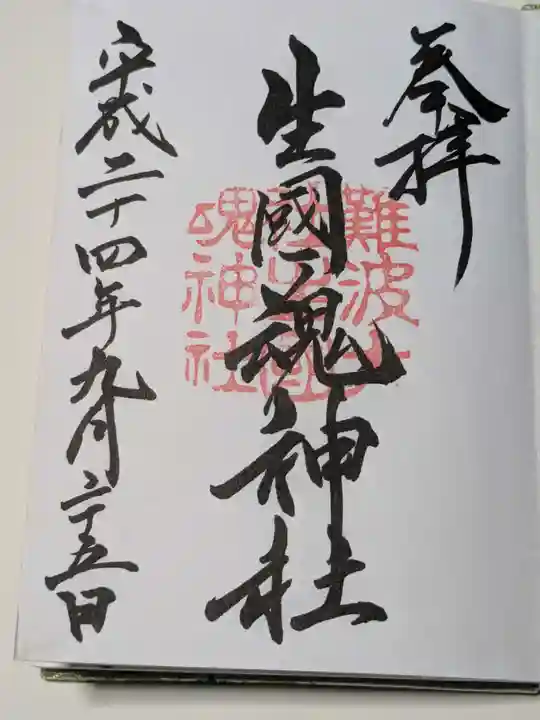 奉拝
生國魂神社
難波大社生國魂神社
平成二十四年九月二十五日